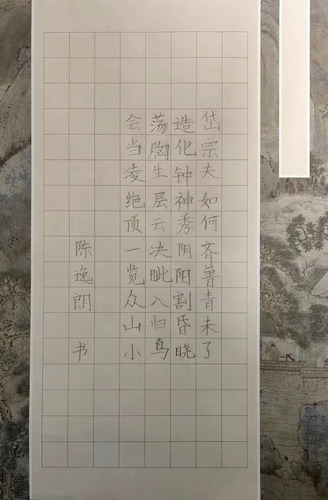 岱宗夫如何齐鲁青未了
造化钟神秀阴阳割昏晓
荡胸生层云决眦入归鸟
会当凌绝顶一览众山小
陈逸阴 书